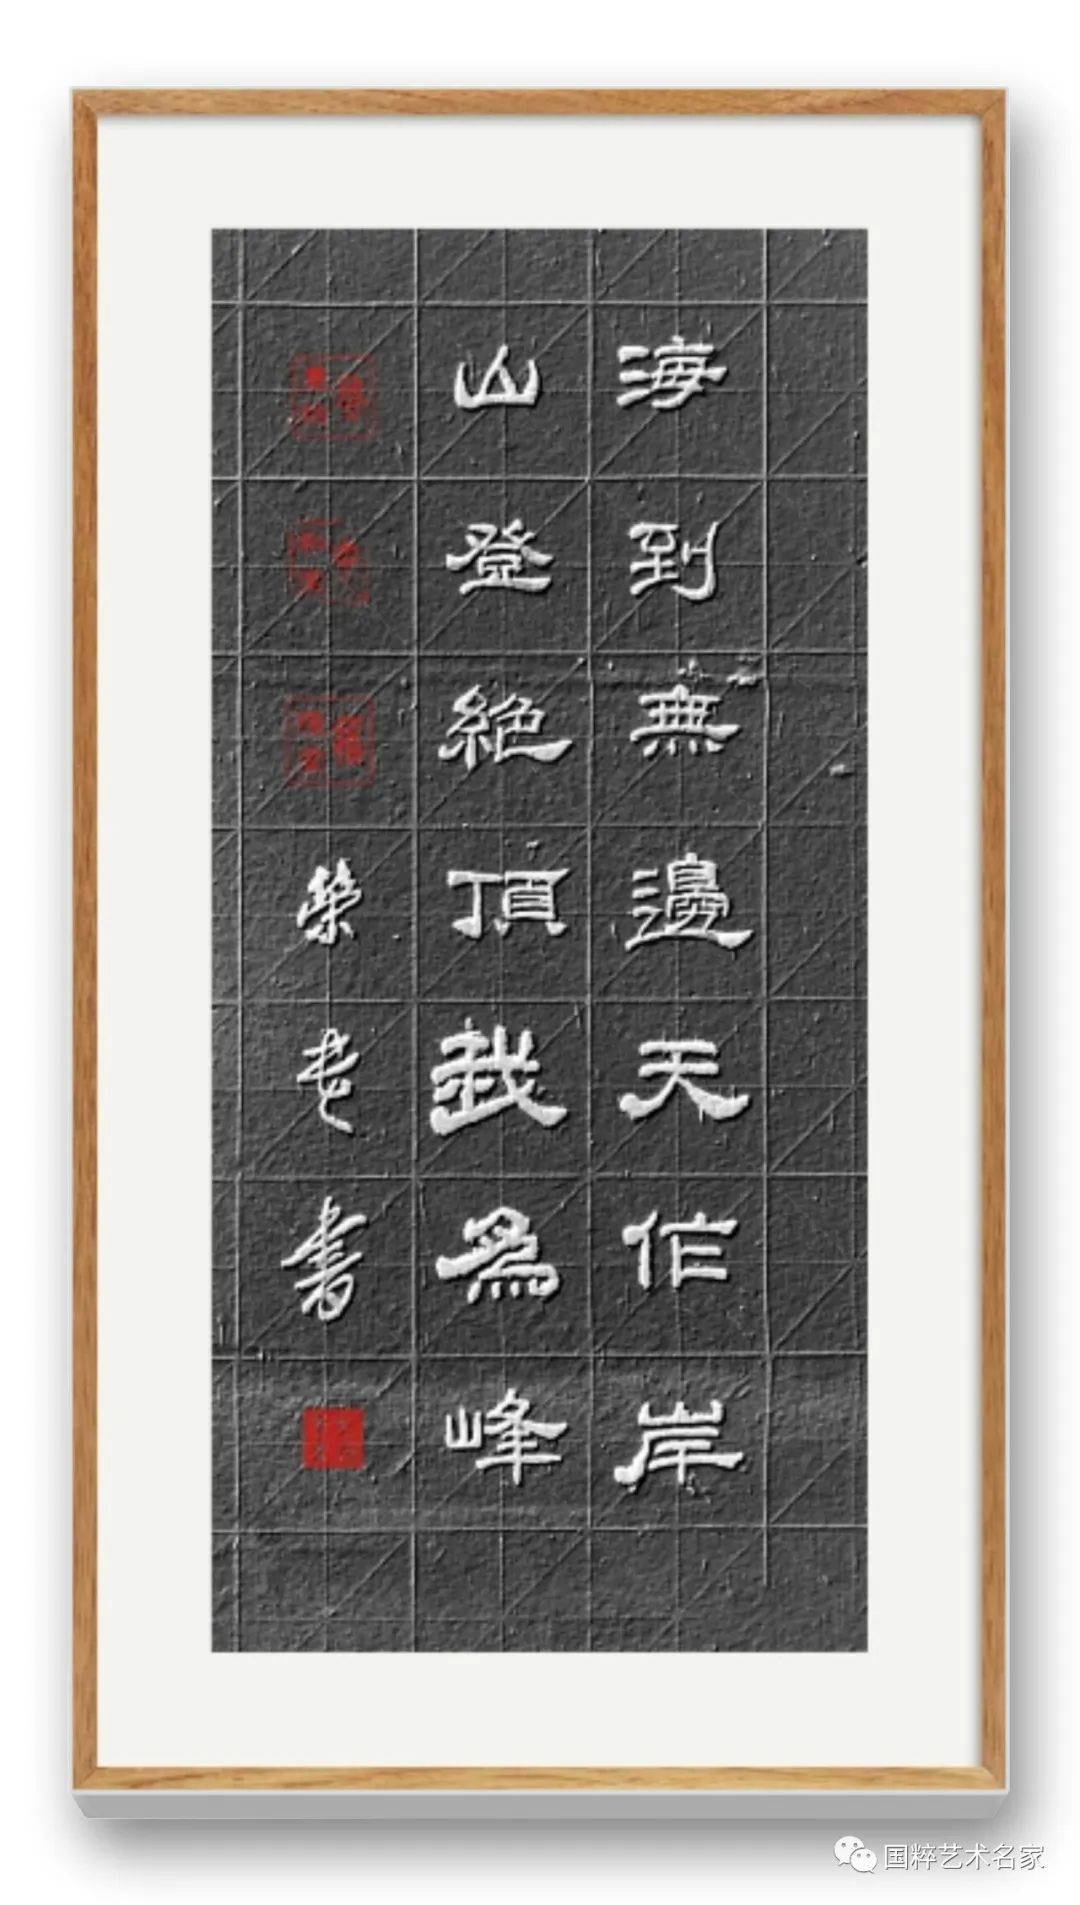 海到無邊天作岸
山登絕頂我為峰
榮老書
国粹艺术名家